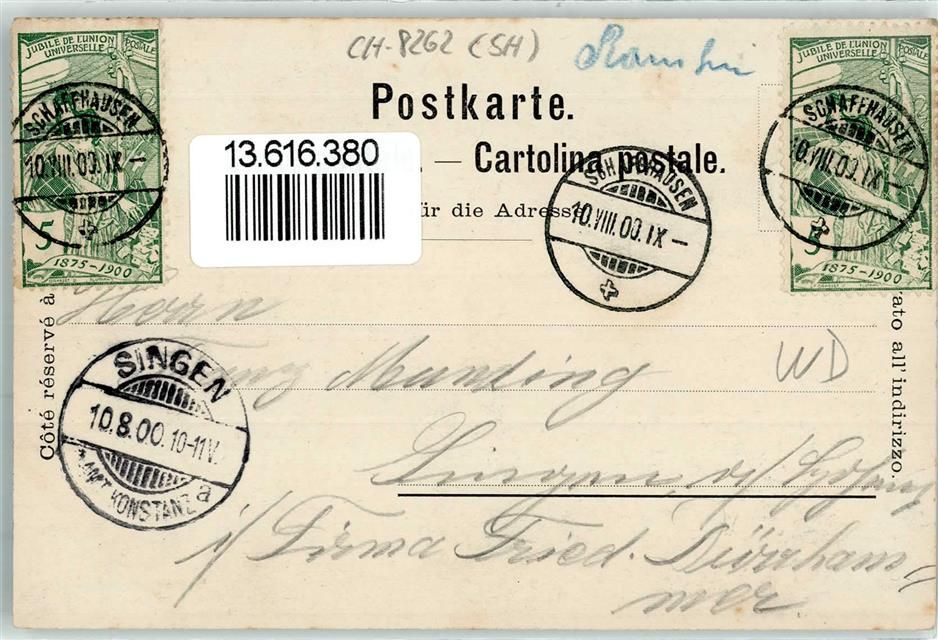 CH-8262 (SH)
Ramsen
JUBILÉ DE L'UNION POSTALE
UNIVERSELLE
SCHAFFHAUSEN
10.VIII.00.IX-
5
1875-1900
JUBILÉ DE L'UNION POSTALE
UNIVERSELLE
SCHAFFHAUSEN
10.VIII.00.IX-
5
1875-1900
Postkarte.
13.616.380
— Cartolina postale.
für die Adresse
SCHAFFHAUSEN
10.VIII.00.IX-
Côté réservé à
rato all'indirizzo.
Herrn
Munding
WD
Singen
SINGEN
10.8.00.10-11V.
AMT KONSTANZ
a
i/ Firma Fried. Dürrham=
mer.